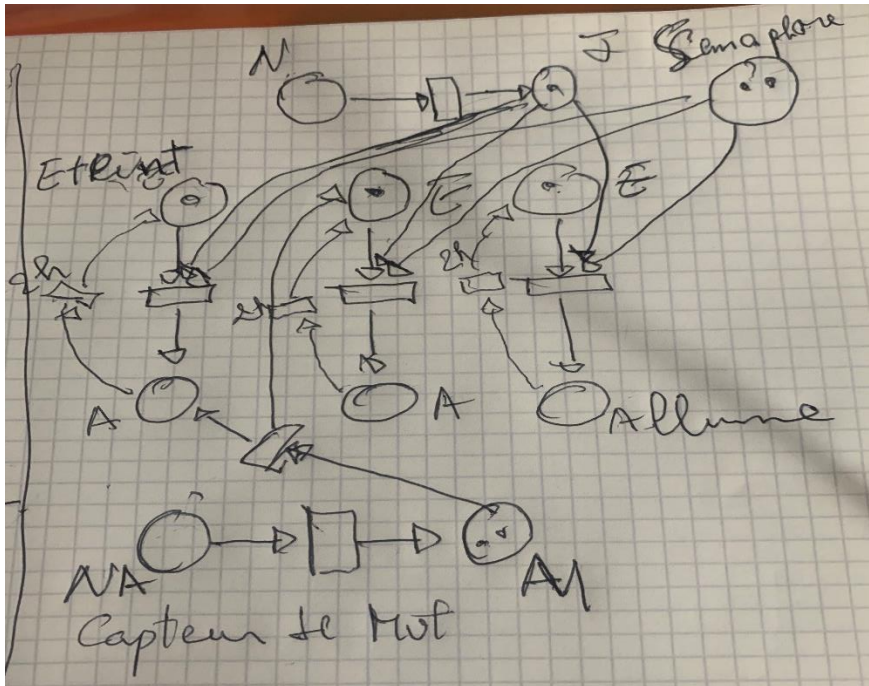 N
J Semaphore
Eteint
E
E
2h
2h
2h
A
A
Allume
NA
A
Capteur de Mvt